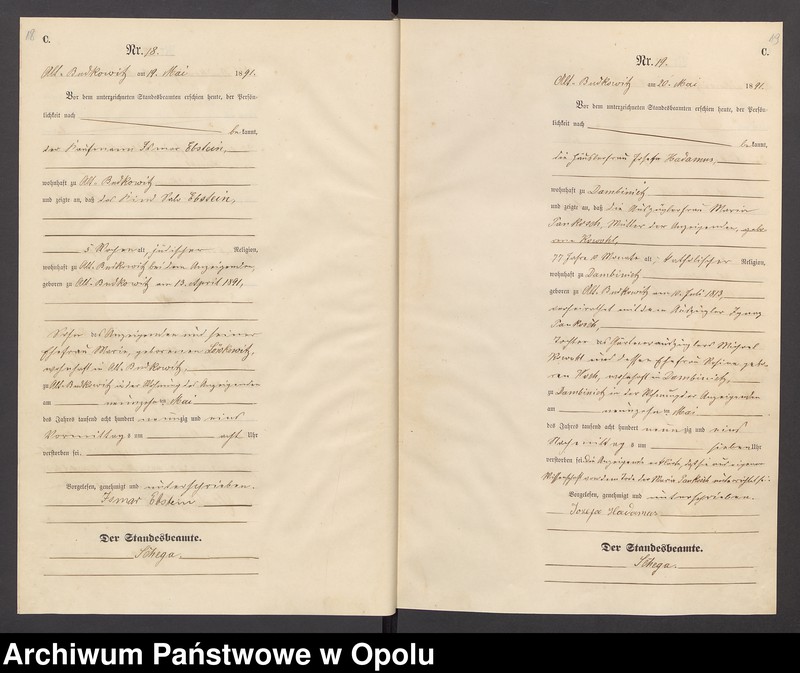 18
C.
Nr. 18.
Alt-Budkowitz am 19. Mai 1891.
Vor dem unterzeichneten Standesbeamten erschien heute, der Persön-
lichkeit nach
bekannt,
der Kaufmann Ismar Ebstein,
wohnhaft zu Alt-Budkowitz
und zeigte an, daß das Kind Ebstein,
5 Wochen alt, jüdischer Religion,
wohnhaft zu Alt-Budkowitz bei dem Anzeigenden,
geboren zu Alt-Budkowitz am 13. April 1891,
Sohn des Anzeigenden und seiner
Ehefrau Marie, geborenen
wohnhaft in Alt-Budkowitz,
zu Alt-Budkowitz in der Wohnung des Anzeigenden
am neunzehnten Mai
des Jahres tausend acht hundert neunzig und eins
Vormittags um acht Uhr
verstorben sei.
Vorgelesen, genehmigt und unterschrieben.
Ismar Ebstein
Der Standesbeamte.
19
C.
Nr. 19.
Alt-Budkowitz am 20. Mai 1891.
Vor dem unterzeichneten Standesbeamten erschien heute, der Persön-
lichkeit nach
bekannt,
die Häuslerfrau Josefa Hadamus,
wohnhaft zu Dambinietz
und zeigte an, daß die Auszüglerfrau Maria
Pankosch, Mutter der Anzeigenden, gebo
rene Kowohl,
77 Jahre Monate alt, katholischer Religion,
wohnhaft zu Dambinietz
geboren zu Alt-Budkowitz am Juli 1813,
verheirathet mit dem Auszügler Ignaz
Pankosch,
Tochter des Gärtnerauszüglers Michael
Kowohl und dessen Ehefrau Rosina gebo-
renen wohnhaft in Dambinietz,
zu Dambinietz in der Wohnung der Anzeigenden
am neunzehnten Mai
des Jahres tausend acht hundert neunzig und eins
Nachmittags um sieben Uhr
verstorben sei. Die Anzeigende erklärte, daß sie aus eigener
Wissenschaft von dem Tode der Maria Pankosch unterrichtet sei.
Vorgelesen, genehmigt und unterschrieben.
Jozefa Hadamus
Der Standesbeamte.
Archiwum Państwowe w Opolu